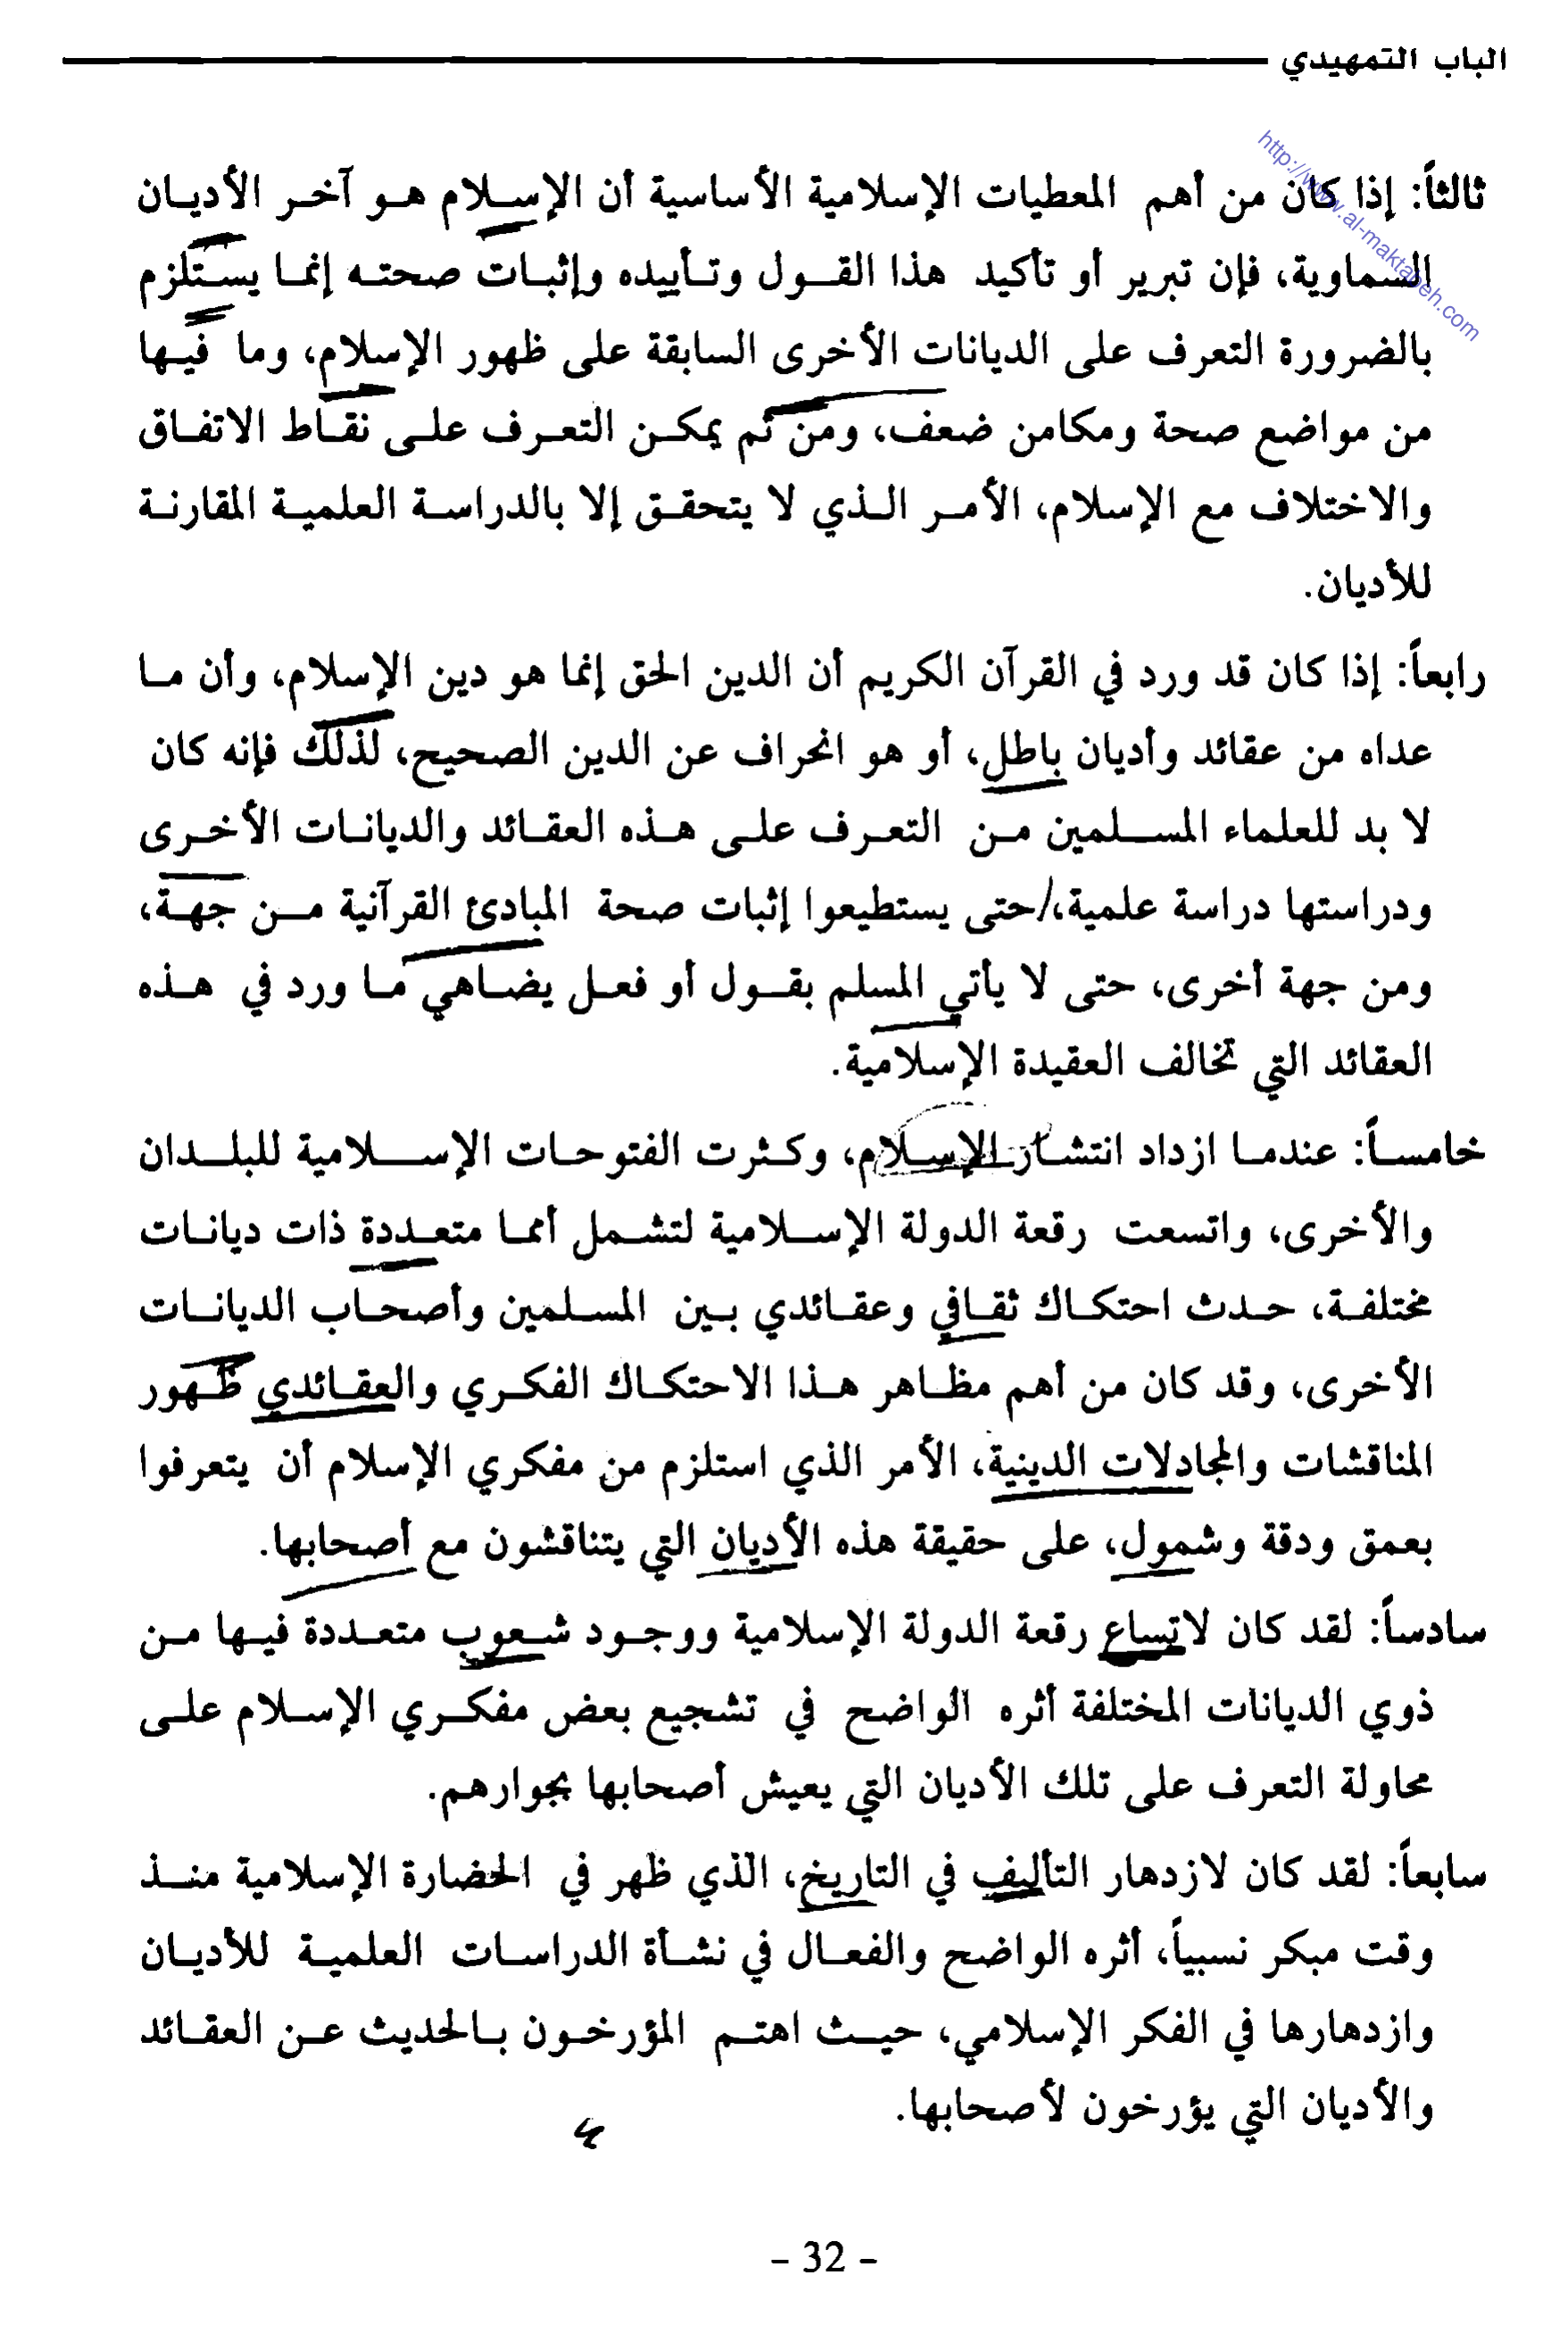 الباب التمهيدي
http://www.al-maktabeh.com
ثالثاً: إذا كان من أهم المعطيات الإسلامية الأساسية أن الإسلام هو آخر الأديان
السماوية، فإن تبرير أو تأكيد هذا القول وتأييده وإثبات صحته إنما يستلزم
بالضرورة التعرف على الديانات الأخرى السابقة على ظهور الإسلام، وما فيها
من مواضع صحة ومكامن ضعف، ومن ثم يمكن التعرف على نقاط الاتفاق
والاختلاف مع الإسلام، الأمر الذي لا يتحقق إلا بالدراسة العلمية المقارنة
للأديان.
رابعاً: إذا كان قد ورد في القرآن الكريم أن الدين الحق إنما هو دين الإسلام، وأن ما
عداه من عقائد وأديان باطل، أو هو انحراف عن الدين الصحيح، لذلك فإنه كان
لا بد للعلماء المسلمين من التعرف على هذه العقائد والديانات الأخرى
ودراستها دراسة علمية، حتى يستطيعوا إثبات صحة المبادئ القرآنية من جهة،
ومن جهة أخرى، حتى لا يأتي المسلم بقول أو فعل يضاهي ما ورد في هذه
العقائد التي تخالف العقيدة الإسلامية.
خامساً: عندما ازداد انتشار الإسلام، وكثرت الفتوحات الإسلامية للبلدان
والأخرى، واتسعت رقعة الدولة الإسلامية لتشمل أمما متعددة ذات ديانات
مختلفة، حدث احتكاك ثقافي وعقائدي بين المسلمين وأصحاب الديانات
الأخرى، وقد كان من أهم مظاهر هذا الاحتكاك الفكري والعقائدي ظهور
المناقشات والمجادلات الدينية، الأمر الذي استلزم من مفكري الإسلام أن يتعرفوا
بعمق ودقة وشمول، على حقيقة هذه الأديان التي يتناقشون مع أصحابها.
سادساً: لقد كان لاتساع رقعة الدولة الإسلامية ووجود شعوب متعددة فيها من
ذوي الديانات المختلفة أثره الواضح في تشجيع بعض مفكري الإسلام على
محاولة التعرف على تلك الأديان التي يعيش أصحابها بجوارهم.
سابعاً: لقد كان لازدهار التأليف في التاريخ، الذي ظهر في الحضارة الإسلامية منذ
وقت مبكر نسبياً، أثره الواضح والفعال في نشأة الدراسات العلمية للأديان
وازدهارها في الفكر الإسلامي، حيث اهتم المؤرخون بالحديث عن العقائد
والأديان التي يؤرخون لأصحابها.
- 32 -